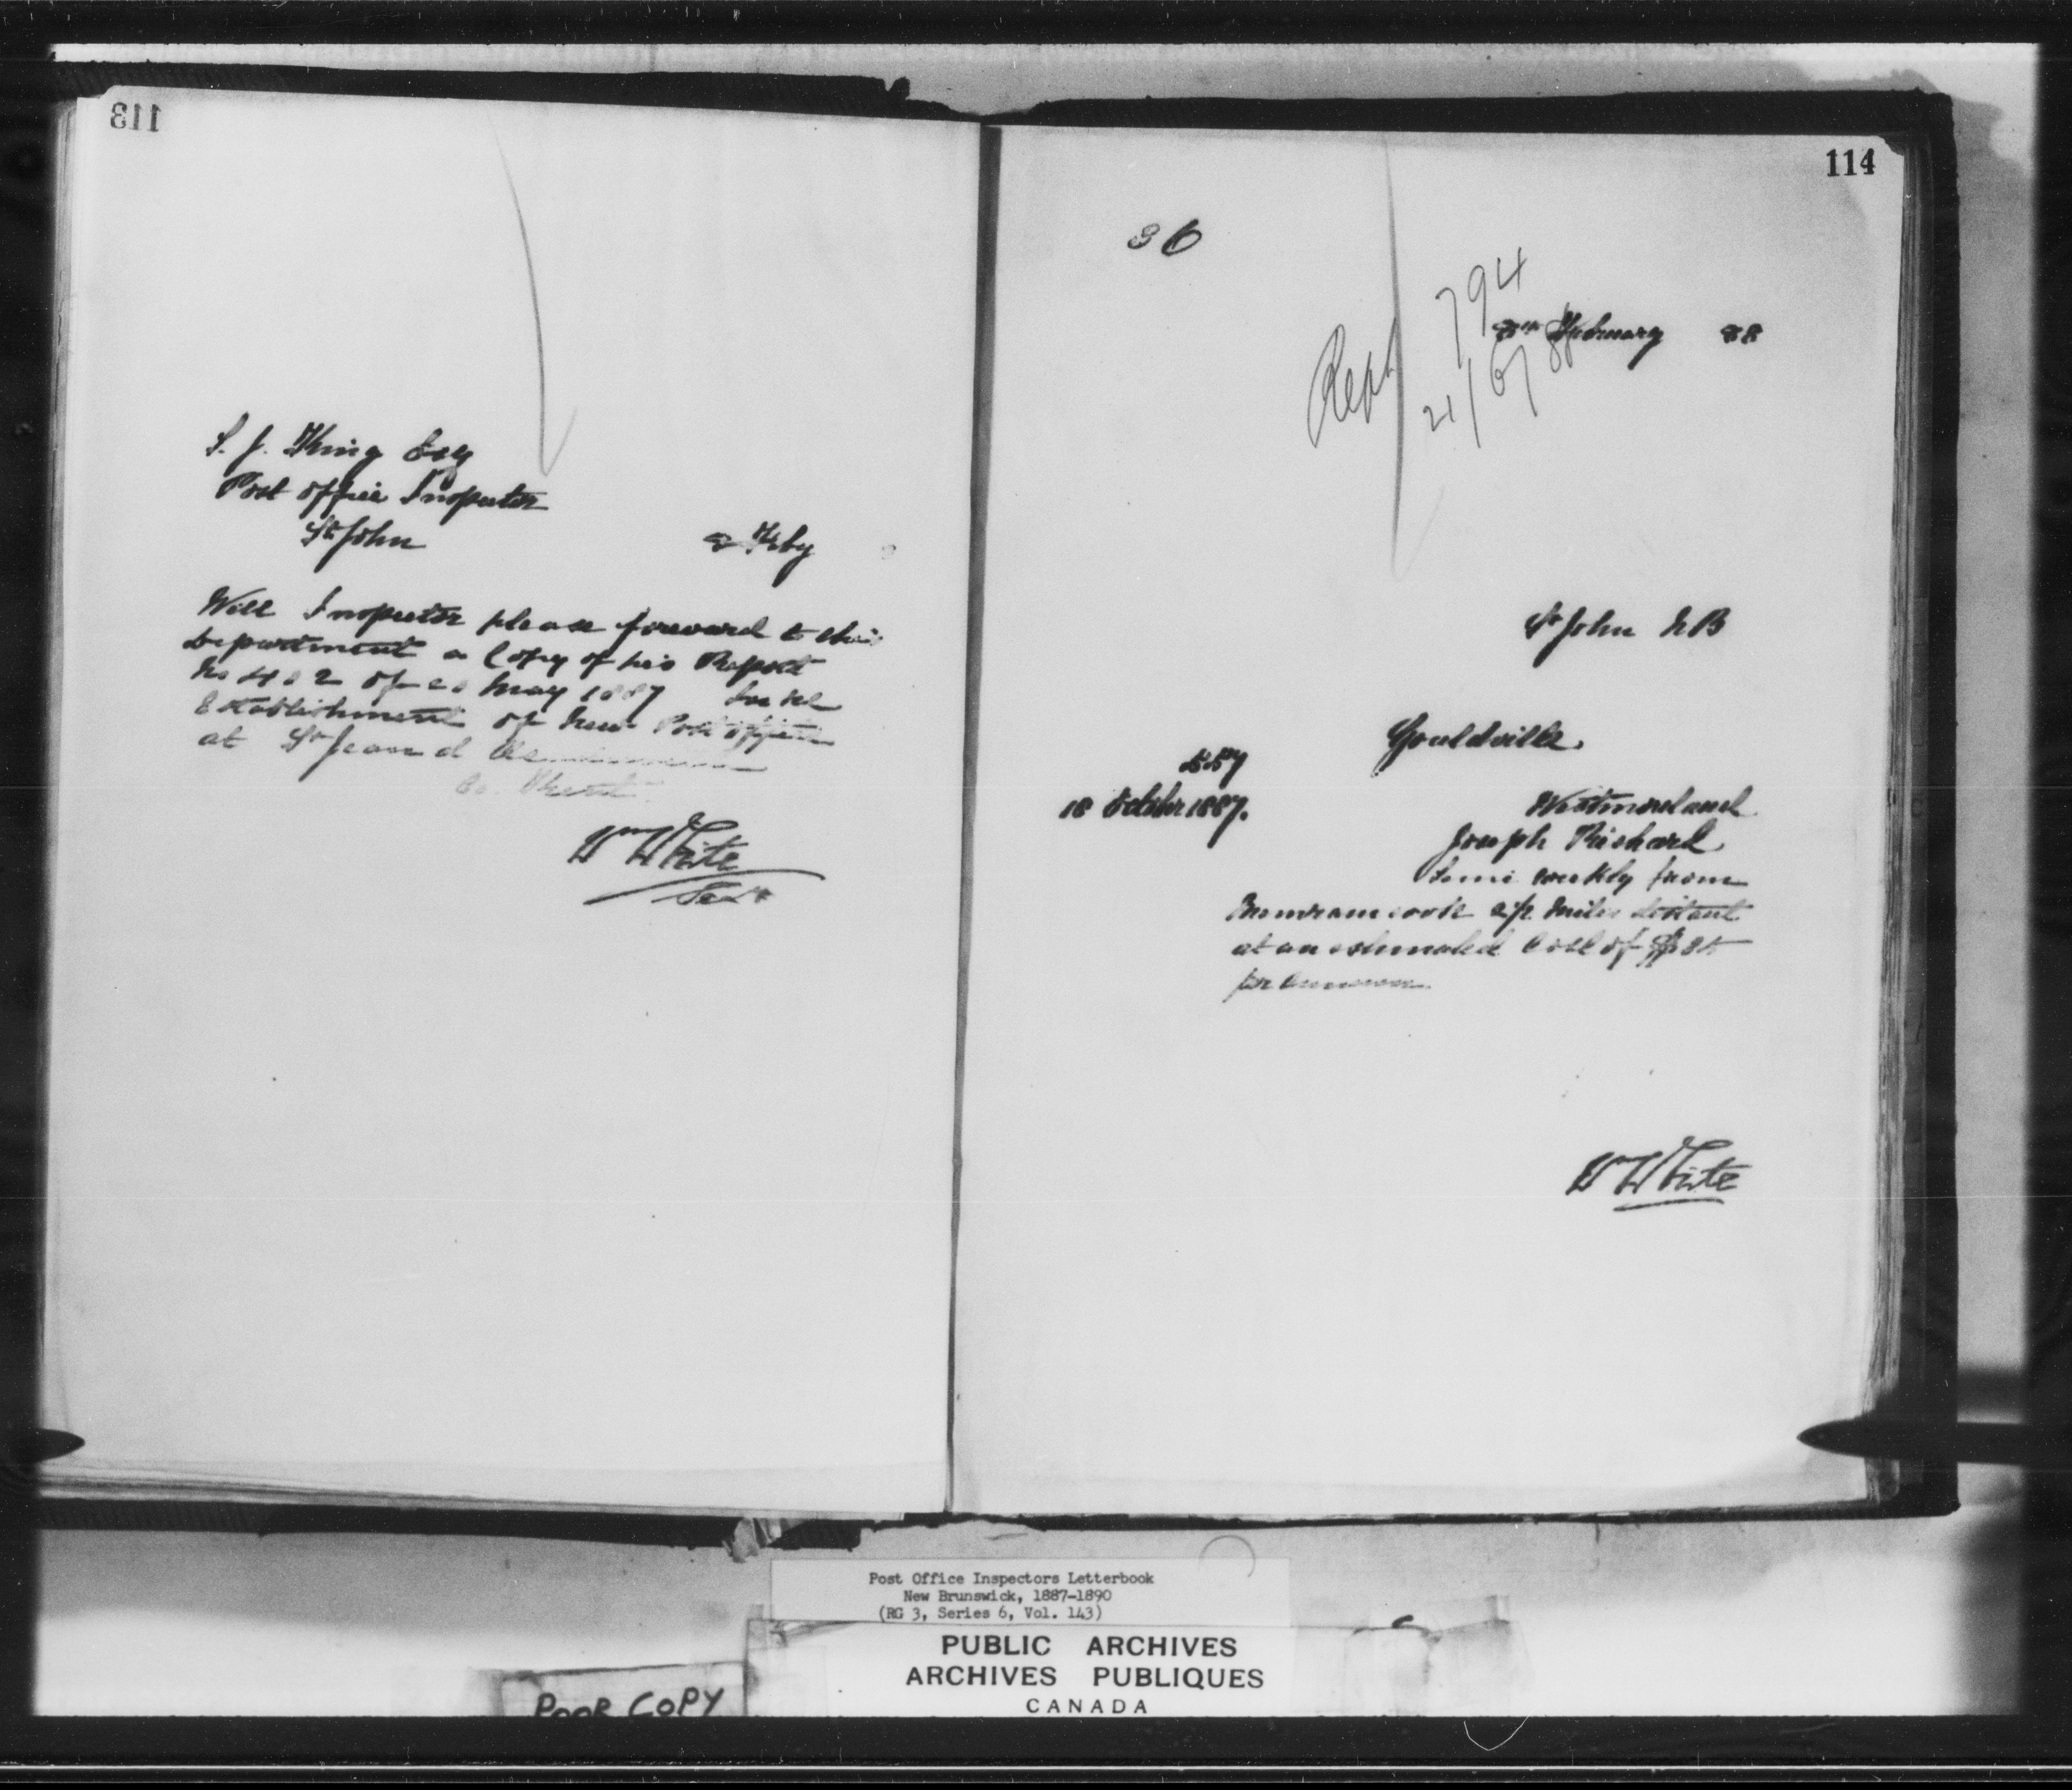 113
S. J. King Esq
Post office Inspector
St John
8 Feby
Will Inspector please forward to this
Department a Copy of his Report
No 402 of May 1887 for the
Establishment of New Post office
at St Jean d
Co. Kent
Wm White
Secy
114
36
794
Rept
21/6/88
8th February 88
St John NB
Gouldville.
557
18 October 1887.
Westmoreland
Joseph Richard
Semi weekly from
Memramcook 2½ miles distant
at an estimated Cost of
per annum
Wm White
Post Office Inspectors Letterbook
New Brunswick, 1887-1890
(RG 3, Series 6, Vol. 143)
PUBLIC ARCHIVES
ARCHIVES PUBLIQUES
CANADA
POOR COPY